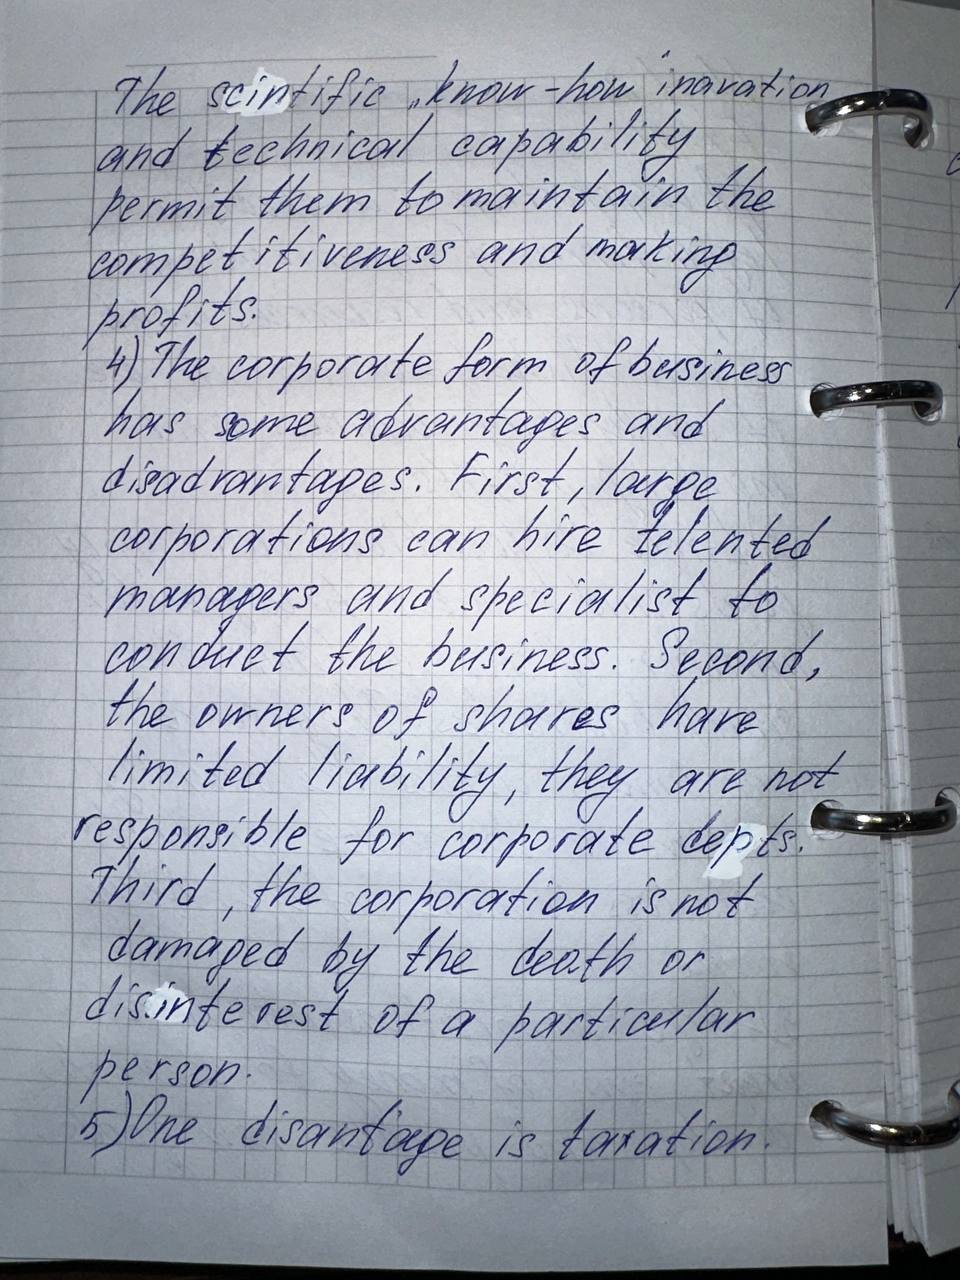 The scintific „know-how inavation
and technical capability
permit them to maintain the
competitiveness and making
profits.
4) The corporate form of business
has some advantages and
disadvantages. First, large
corporations can hire telented
managers and specialist to
conduct the business. Second,
the owners of shares have
limited liability, they are not
responsible for corporate depts.
Third, the corporation is not
damaged by the death or
disinterest of a particular
person.
5) One disantage is taxation.